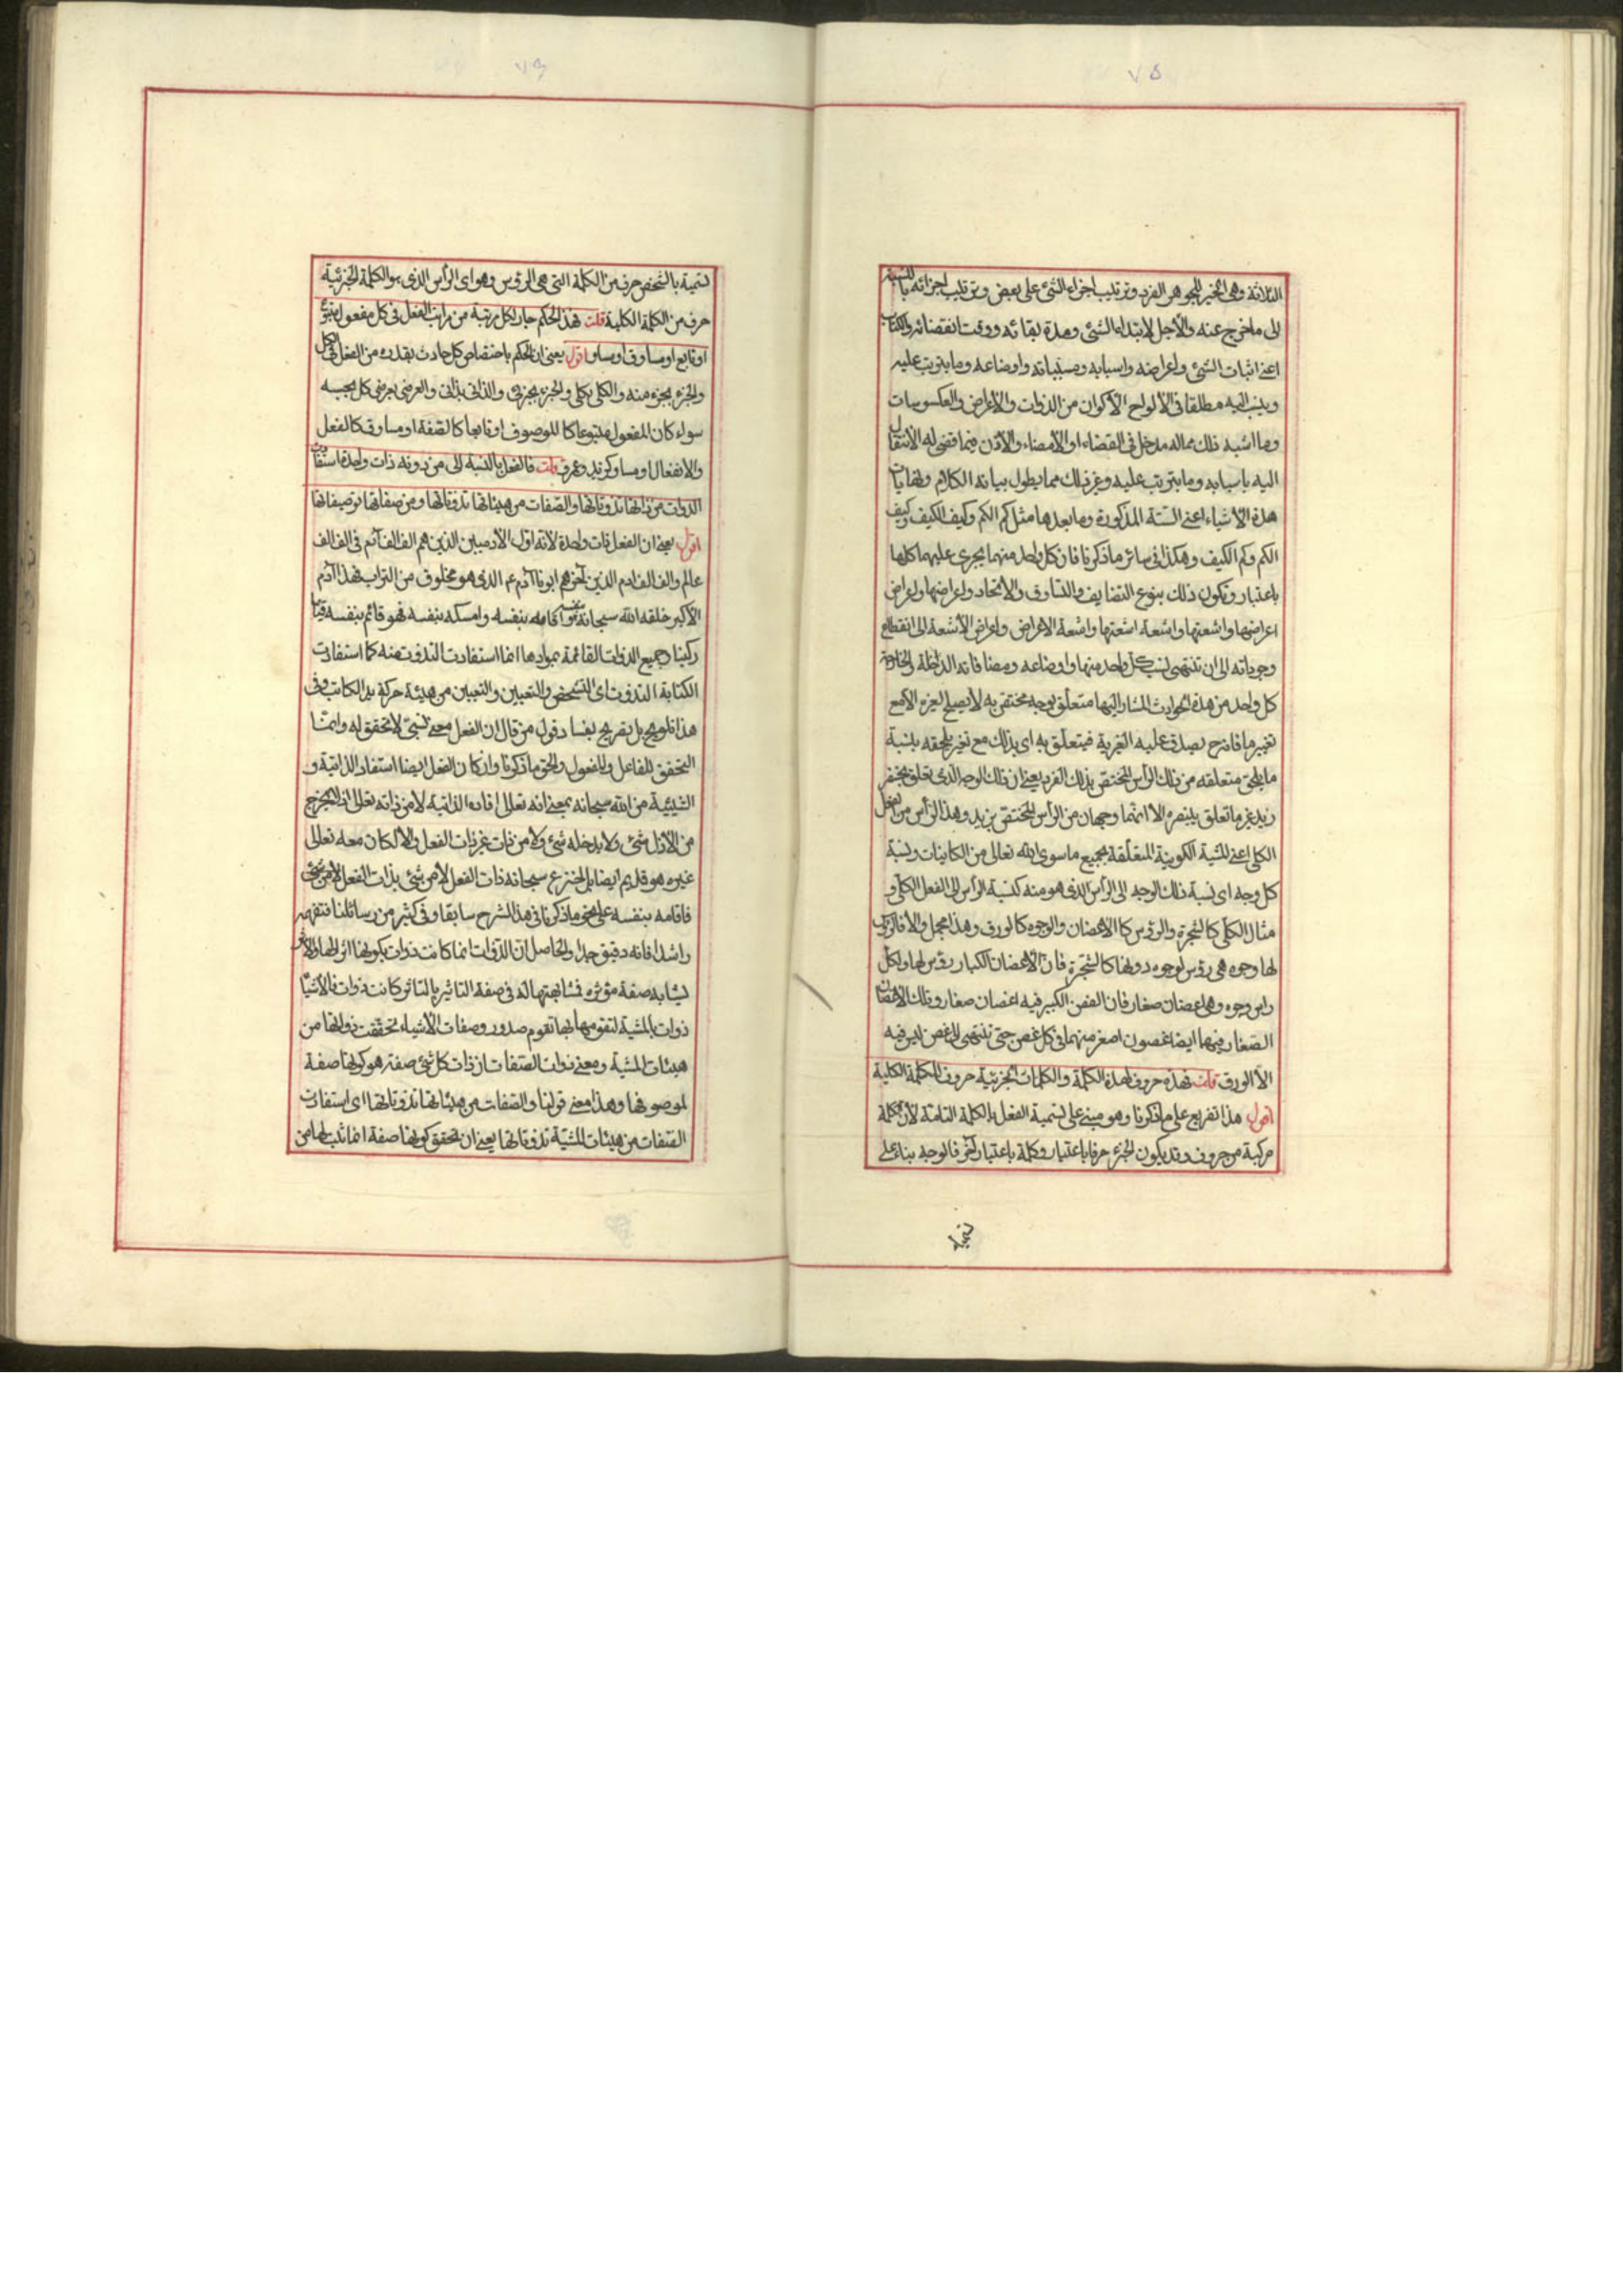 ٧٥
الثلاثة وهي الحيز للجوهر الفرد وترتيب اجزاء الشئ على بعض وترتيب اجزائه بالنسبة
الى ما خرج عنه والأجل لابتداء الشئ ومدة بقائه ووقت انقضائه والكتاب
اعنى اثبات الشئ واعراضه واسبابه ومسبباته واوضاعه وما يترتب عليه
وينسب اليه مطلقا فى الألواح الأكوان من الذوات والاعراض والعكسوسات
وما اشبه ذلك مما له مدخل فى القضاء او الأمضاء والأذن فيما قضى له الأنتقال
اليه باسبابه وما يترتب عليه وغير ذلك مما يطول بيانه الكلام ونهايات
هذه الأشياء اعنى الستة المذكورة وما بعدها مثل كم الكم وكيف الكيف وكيف
الكم وكم الكيف وهكذا فى سائر ما ذكرنا فان كل واحد منهما يجرى عليهما كلها
باعتبار ويكون ذلك بنوع التضايف والتساوق والاتحاد واعراضها واعراض
اعراضها واشعتها واشعة اشعتها واشعة الاعراض واعراض الأشعة الى انقطاع
وجوداته الى ان تنتهى نسب كل واحد منها واوضاعه ومضافاته الداخلة والخارجة
كل واحد من هذه الحوادث المشار اليها متعلق بوجه مختص به لا يصلح لغيره الا مع
تغيير ما فانرح يصدق عليه الغيرية فيتعلق به اى بذلك مع تغير يلحقه بنسبة
ما يلحق متعلقه من ذلك الرأس المختص بذلك الفرد يعنى ان ذلك الوجه الذى تعلق بخنصر
زيد غير ما تعلق ببنصره الا انهما وجهان من الرأس المختص بزيد وهذا الرأس من الفعل
الكلى اعنى المشية الكونية المتعلقة بجميع ما سوى الله تعالى من الكاينات ونسبة
كل وجه اى نسبة ذلك الوجه الى الرأس الذى هو منه كنسبة الرأس الى الفعل الكلى و
مثال الكلى كالشجرة والرؤس كالأغصان والوجوه كالورق وهذا مجمل والا فالرؤس
لها وجوه هى رؤس لوجوه دونها كالشجرة فان الأغصان الكبار رؤس لها ولكل
راس وجوه وهى اغصان صغار فان الغصن الكبير فيه اغصان صغار وتلك الاغصان
الصغار فيها ايضا غصون اصغر منها فى كل غصن حتى تنتهى الى غصن ليس فيه
الا الورق قلت فهذه حروف لهذه الكلمة والكلمات الجزئية حروف للكلمة الكلية
اقول هذا تفريع على ما ذكرنا وهو مبنى على تسمية الفعل بالكلمة التامة لأن الكلمة
مركبة من حروف وقد يكون الجزء حرفا باعتبار وكلمة باعتبار آخر فالوجه بناء على
تسمية
٧٦
تسمية بالشخص حرف من الكلمة التى هى الرؤس وهو اى الرأس الذى هو الكلمة الجزئية
حرف من الكلمة الكلية قلت فهذا الحكم جار لكل رتبة من مراتب الفعل فى كل مفعول متبوع
او تابع او مساوق او مساو اقول يعنى ان الحكم باختصاص كل حادث بقدره من الفعل الكل
والجزء بجزء منه والكلى بكلى والجزئى بجزئى والذاتى بذاتى والعرضى بعرضى كل بحسبه
سواء كان المفعول متبوعا كالموصوف او تابعا كالصفة او مساوقا كالفعل
والانفعال او مساو كزيد وعمرو قلت فالفعل بالنسبة الى من دونه ذات واحدة استفادت
الذوات من ذاتها تذوتاتها والصفات من هيئاتها تذوتاتها ومن صفاتها توصيفاتها
اقول يعنى ان الفعل ذات واحدة لأنه اول الآدميين الذين هم الف الف آدم فى الف الف
عالم والف الف ادم الذين آخرهم ابونا آدم ع م الذى هو مخلوق من التراب فهذا آدم
الاكبر خلقه الله سبحانه بنفسه اى اقامه بنفسه وامسكه بنفسه فهو قائم بنفسه قياما
ركنيا وجميع الذوات القائمة بموادها انما استفادت التذوت منه كما استفادت
الكتابة التذوت اى التشخص والتعيين والتعيين من هيئة حركة يد الكاتب وفى
هذا تلويح بل تصريح بفساد قول من قال ان الفعل معنى نسبى لا تحقق له وانما
التحقق للفاعل والمفعول والحق ما ذكرنا وان كان الفعل ايضا استفاد الذاتية و
الشيئية من الله سبحانه بمعنى انه تعالى افاده الذاتية لا من ذاته تعالى اذ لا يخرج
من الأزل شئ ولا يدخله شئ ولا من ذات غير ذات الفعل والا لكان معه تعالى
غيره هو قديم ايضا بل اخترع سبحانه ذات الفعل لا من شئ بذات الفعل لا من شئ
فاقامه بنفسه على نحو ما ذكرنا فى هذا الشرح سابقا وفى كثير من رسائلنا فتفهم
راشدا فانه دقيق جدا والحاصل ان الذوات انما كانت ذوات بكونها اثر لها والاثر
يشابه صفة مؤثره فشابهتها له فى صفة التاثير بالتاثر كانت ذوات فالأشياء
ذوات بالمشية لتقومها بها تقوم صدور وصفات الأشياء تحققت ذواتها من
هيئات المشية ومعنى ذوات الصفات ان ذات كل شئ صفة هو كونها صفة
لموصوفها وهذا معنى قولنا والصفات من هيئاتها تذوتاتها اى استفادت
الصفات من هيئات المشية تذوتاتها يعنى ان تحقق كونها صفة انما ثبت لها من